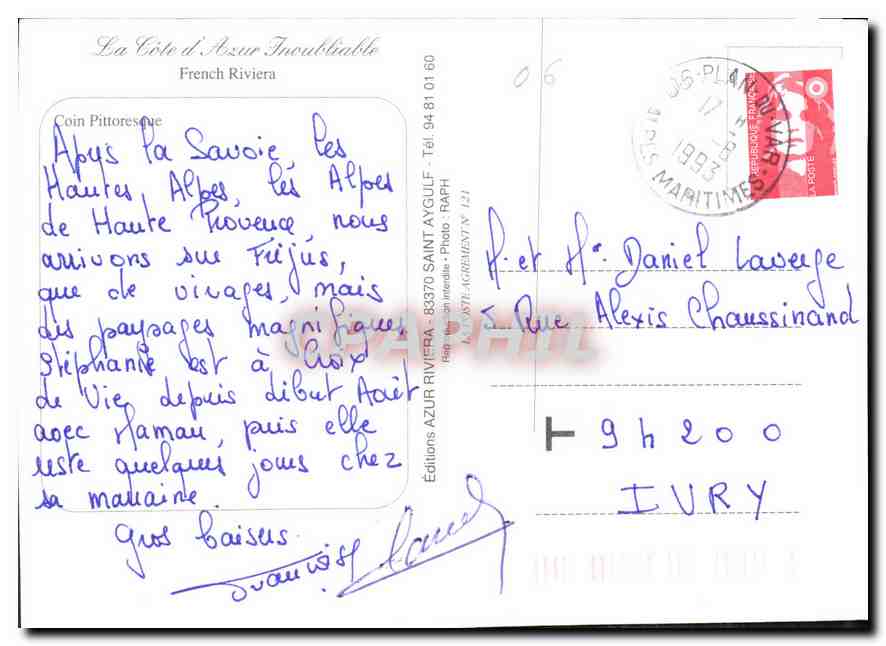 La Côte d'Azur Inoubliable
French Riviera
Coin Pittoresque
Après la Savoie, les
Hautes Alpes, les Alpes
de Haute Provence, nous
arrivons sur Fréjus,
que de virages, mais
des paysages magnifiques
Stéphanie est à Croix
de Vie depuis début Août
avec Maman, puis elle
reste quelques jours chez
sa marraine.
Gros baisers.
Editions AZUR RIVIERA - 83370 SAINT AYGULF - Tél. 94 81 01 60
Reproduction interdite • Photo : RAPH
LA POSTE AGREMENT N° 121
06
PLAN-DU-VAR
17 H
-8-
1993
ALPES MARITIMES
REPUBLIQUE FRANÇAISE
LA POSTE
M. et Me Daniel Laverge
5 Rue Alexis Chaussinand
94200
IVRY
CPAPHIL